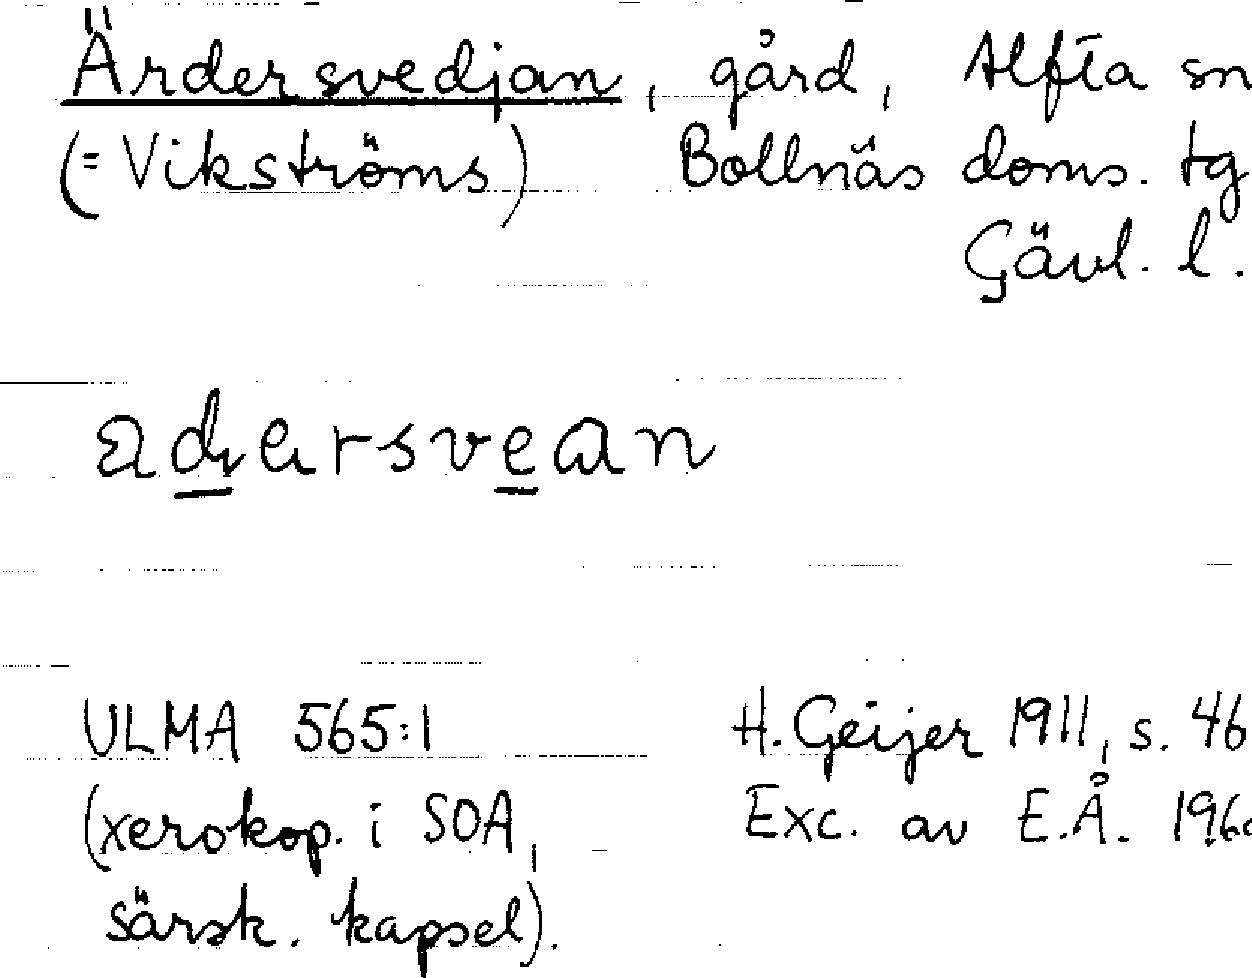 Ärdersvedjan, gård, Alfta sn
(= Vikströms) Bollnäs doms. tg
Gävl. l.
ULMA 565:1 H. Geijer 1911, s. 46
(xerokop. i SOA, Exc. av E.Å.
särsk. kapsel).